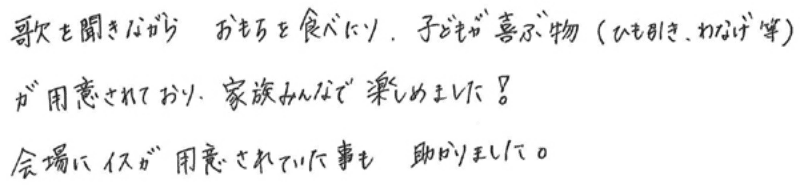 歌を聞きながら おもちを食べたり、子どもが喜ぶ物(ひも引き、わなげ等)
が用意されており、家族みんなで楽しめました!
会場にイスが用意されていた事も 助かりました。